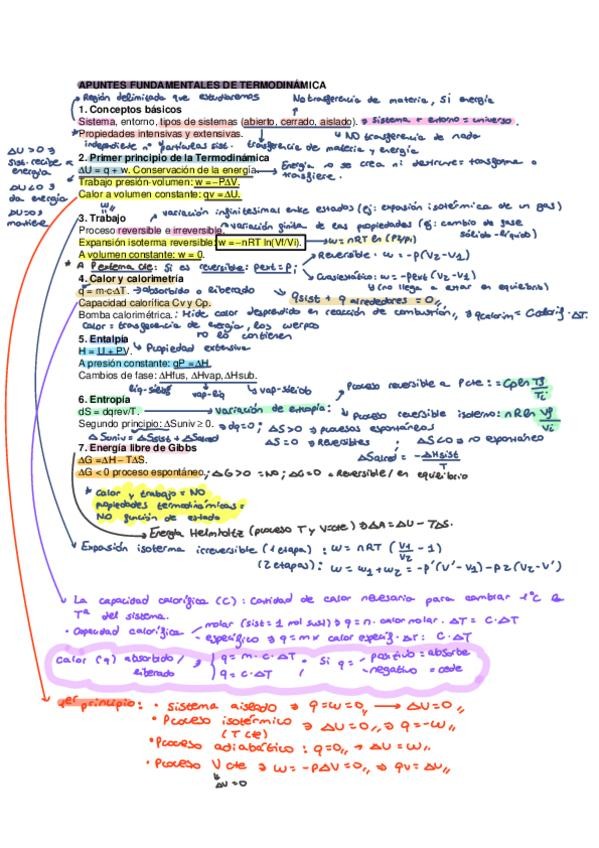 APUNTES FUNDAMENTALES DE TERMODINÁMICA
Región delimitada que estudiaremos
No transferencia de materia, si energía
1. Conceptos básicos
Sistema, entorno, tipos de sistemas (abierto, cerrado, aislado). ⇒ sistema + entorno = universo.
Propiedades intensivas y extensivas.
NO transferencia de nada
independiente nº partículas sist.
transferencia de materia y energía
2. Primer principio de la Termodinámica
ΔU = q + w. Conservación de la energía.
Energía no se crea ni destruye: transforma o transfiere.
ΔU > 0 ⇒
sist. recibe
energía
ΔU < 0 ⇒
da energía
ΔU = 0 ⇒
mantiene
Trabajo presión-volumen: w = −PΔV.
Calor a volumen constante: qv = ΔU.
3. Trabajo
variación infinitesimal entre estados (ej: expansión isotérmica de un gas)
Proceso reversible e irreversible.
variación finita de las propiedades (ej: cambio de fase
sólido-líquido)
Expansión isoterma reversible: w = −nRT ln(Vf/Vi).
w = nRT ln (P2/P1)
A volumen constante: w = 0.
Reversible. w = -p(V2-V1)
* A Pexterna cte: Si es reversible: pext = pi
Cuasiestático: w = -pext (V2-V1)
(no llega a estar en equilibrio)
4. Calor y calorimetría
q = m·c·ΔT. → absorbido o liberado
qsist + q alrededores = 0,,
Capacidad calorífica Cv y Cp.
Bomba calorimétrica.: Mide calor desprendido en reacción de combustión,, ⇒ qcalorim = Ccalorif · ΔT.
Calor: transferencia de energía, los cuerpos
no lo contienen
5. Entalpía
H = U + PV.
Propiedad extensiva
A presión constante: qP = ΔH.
Cambios de fase: ΔHfus, ΔHvap, ΔHsub.
vap-liq
vap-sólido
6. Entropía
Proceso reversible a Pcte: = Cp ln Tf/Ti
dS = dqrev/T.
Variación de entropía:
Proceso reversible isotermo: nR ln Vf/Vi
Segundo principio: ΔSuniv ≥ 0.
dq=0; ΔS>0 ⇒ procesos espontáneos
ΔSuniv = ΔSsist + ΔSalred
ΔS = 0 ⇒ Reversibles ; ΔS<0 ⇒ no espontáneo
ΔSalred = -ΔHsist/T
7. Energía libre de Gibbs
ΔG = ΔH − TΔS.
ΔG < 0 proceso espontáneo.; ΔG > 0 = NO; ΔG = 0 = Reversible / en equilibrio
* Calor y trabajo = NO
propiedades termodinámicas =
NO función de estado
Energía Helmholtz (proceso T y V=cte) ⇒ ΔA = ΔU - TΔS.
Expansión isoterma irreversible (1 etapa): w = nRT (V1/V2 - 1)
(2 etapas): w = w1+w2 = -P'(V'-V1)-P2(V2-V')
La capacidad calorífica (C): Cantidad de calor necesaria para cambiar 1ºC la
Tª del sistema.
• Capacidad calorífica
molar (sist = 1 mol sust) ⇒ q = n. calor molar. ΔT = C·ΔT
específico ⇒ q = m × calor específ. ΔT: C·ΔT
Calor (q) absorbido/
liberado
q = m·c·ΔT
q = C·ΔT
Si q =
positivo = absorbe
negativo = cede
1er principio:
• Sistema aislado ⇒ q=w=0,, → ΔU=0,,
• Proceso isotérmico ⇒ ΔU=0,, ⇒ q=-w,,
(T cte)
• Proceso adiabático: q=0,, → ΔU=w,,
• Proceso V cte ⇒ w=-PΔV=0,, ⇒ qv=ΔU,,
ΔV=0